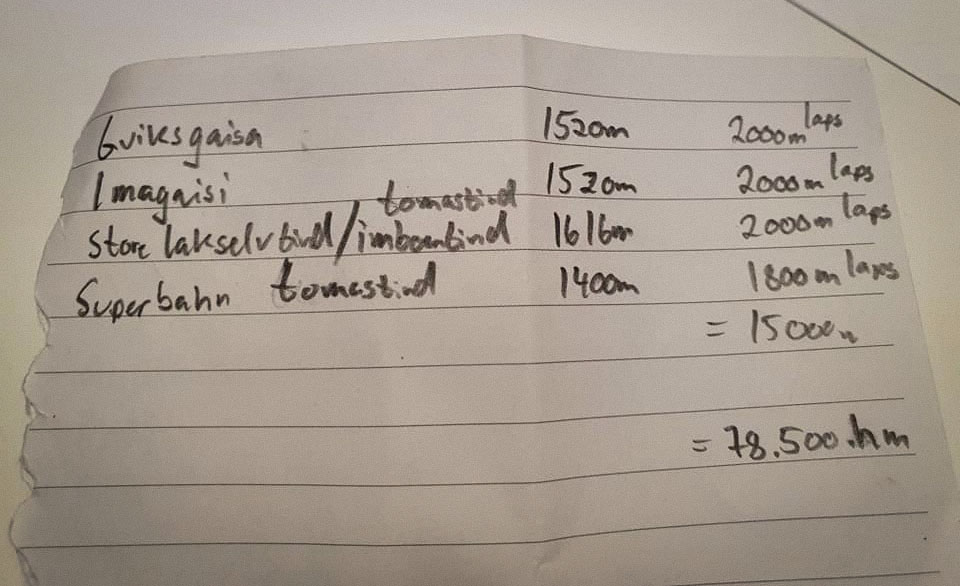 Gviksgaisa 1520m 2000m laps
Imagaisi 1520m 2000m laps
tomastind
Store lakselvtind/imbcentind 1616m 2000m laps
Superbahn tomastind 1400m 1800m laps
= 15000m
= 78.500.hm